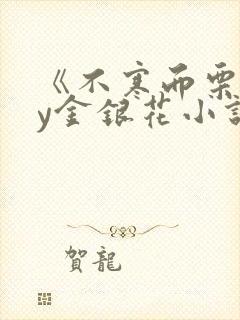 《不寒而栗
y金银花小說
賀龍